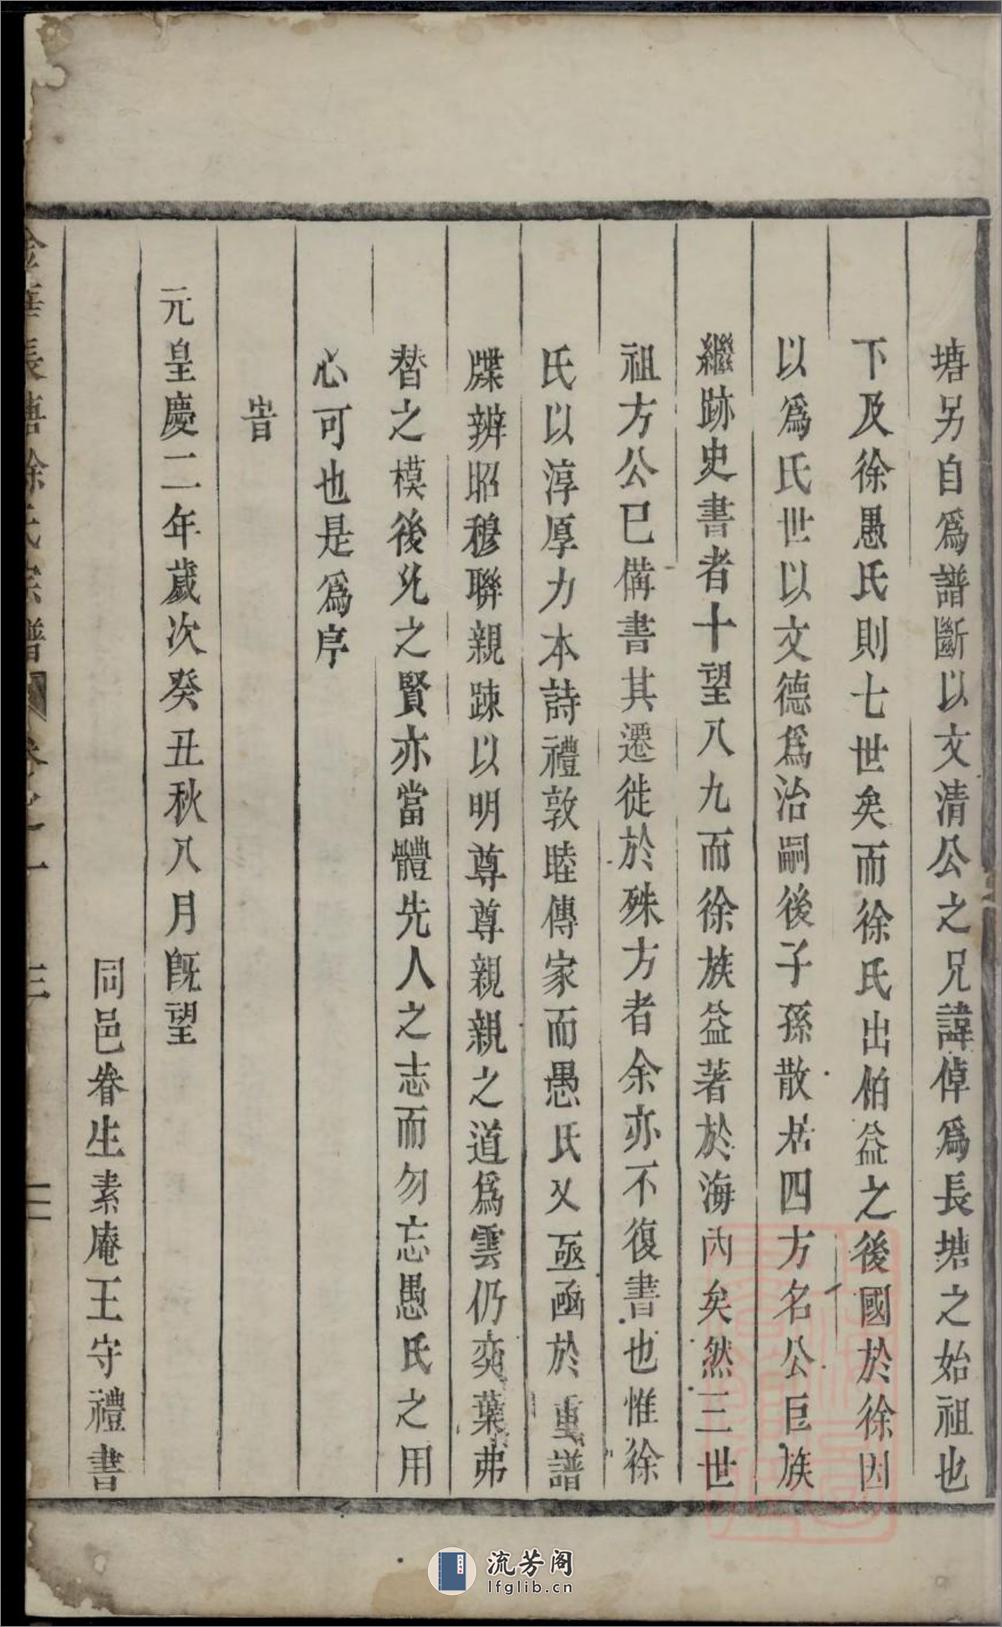 塘另自爲譜斷以文清公之兄諱倬爲長塘之始祖也
下及徐愚氏則七世矣而徐氏出伯益之後國於徐因
以爲氏世以文德爲治嗣後子孫散居四方名公巨族
繼跡史書者十望八九而徐族益著於海內矣然三世
祖方公已備書其遷徙於殊方者余亦不復書也惟徐
氏以淳厚力本詩禮敦睦傳家而愚氏又亟亟於重譜
牒辨昭穆聯親踈以明尊尊親親之道爲雲仍奕葉弗
替之模後允之賢亦當體先人之志而勿忘愚氏之用
心可也是爲序
旹
元皇慶二年歲次癸丑秋八月旣望
同邑眷生素庵王守禮書
金華長塘徐氏宗譜 卷之一 三
流芳阁
lfglib.cn